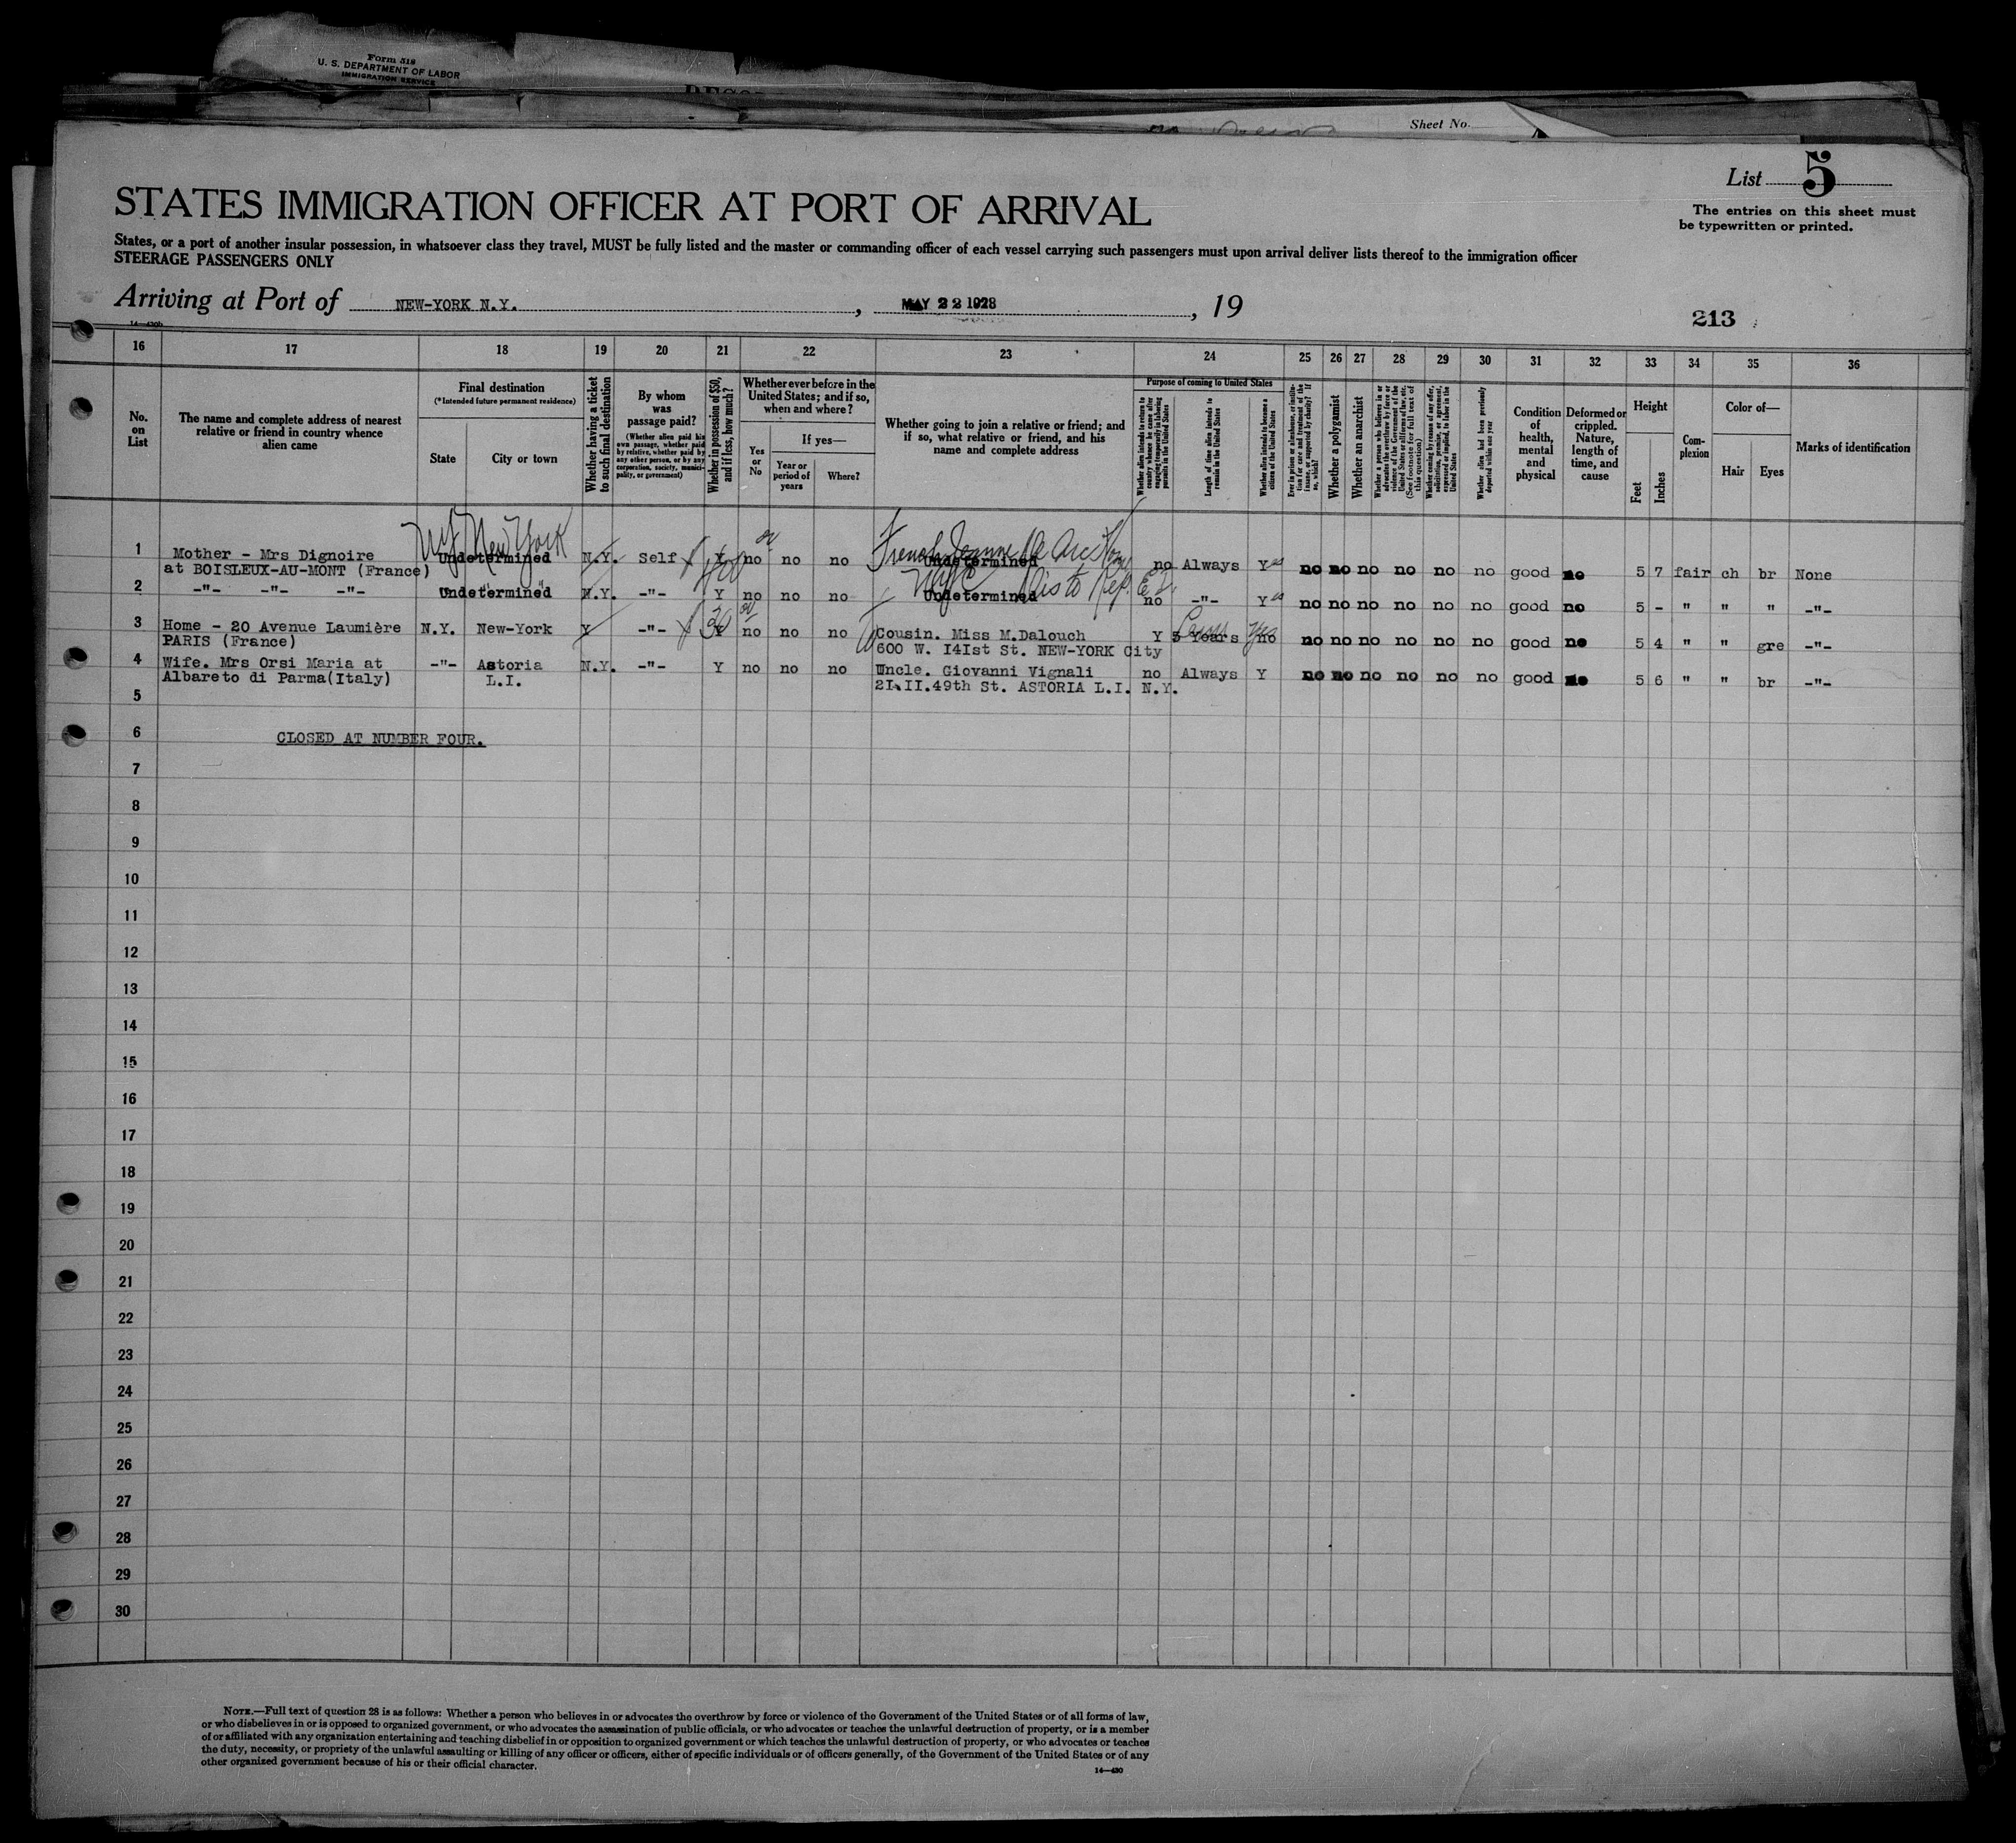 Form 518
U. S. DEPARTMENT OF LABOR
IMMIGRATION SERVICE
Sheet No.
List 5
STATES IMMIGRATION OFFICER AT PORT OF ARRIVAL
The entries on this sheet must
be typewritten or printed.
States, or a port of another insular possession, in whatsoever class they travel, MUST be fully listed and the master or commanding officer of each vessel carrying such passengers must upon arrival deliver lists thereof to the immigration officer
STEERAGE PASSENGERS ONLY
Arriving at Port of NEW-YORK N.Y. , MAY 22 1928 , 19
213
16 17 18 19 20 21 22 23 24 25 26 27 28 29 30 31 32 33 34 35 36
No. on List
The name and complete address of nearest relative or friend in country whence alien came
Final destination
(*Intended future permanent residence)
State
City or town
Whether having a ticket to such final destination
By whom was passage paid?
(Whether alien paid his own passage, whether paid by relative, whether paid by any other person, or by any corporation, society, municipality, or government)
Whether in possession of $50, and if less, how much?
Whether ever before in the United States; and if so, when and where?
Yes or No
If yes—
Year or period of years
Where?
Whether going to join a relative or friend; and if so, what relative or friend, and his name and complete address
Purpose of coming to United States
Whether alien intends to return to country whence he came after engaging temporarily in laboring pursuits in the United States
Length of time alien intends to remain in the United States
Whether alien intends to become a citizen of the United States
Ever in prison or almshouse, or institution for care and treatment of the insane, or supported by charity? If so, which?
Whether a polygamist
Whether an anarchist
Whether a person who believes in or advocates the overthrow by force or violence of the Government of the United States or all forms of law, etc. (See footnote for full text of this question)
Whether coming by reason of any offer, solicitation, promise, or agreement, expressed or implied, to labor in the United States
Whether alien had been previously deported within one year
Condition of health, mental and physical
Deformed or crippled. Nature, length of time, and cause
Height
Feet
Inches
Complexion
Color of—
Hair
Eyes
Marks of identification
NY New York
French Jeanne D Arc Home
1 Mother - Mrs Dignoire Undetermined N.Y. Self Y no no no Undetermined no Always Yes no no no no no no good no 5 7 fair ch br None
at BOISLEUX-AU-MONT (France)
NYC
2 -"- -"- -"- Undetermined N.Y. -"- Y no no no Undetermined no -"- Yes no no no no no no good no 5 - " " " -"-
3 Home - 20 Avenue Laumière N.Y. New-York Y -"- Y no no no Cousin. Miss M.Dalouch Y 5 Years no no no no no no no good no 5 4 " " gre -"-
PARIS (France) 600 W. I4Ist St. NEW-YORK City
4 Wife. Mrs Orsi Maria at -"- Astoria N.Y. -"- Y no no no Uncle. Giovanni Vignali no Always Y no no no no no no good no 5 6 " " br -"-
Albareto di Parma(Italy) L.I. 2I.II.49th St. ASTORIA L.I. N.Y.
5
6 CLOSED AT NUMBER FOUR.
7
8
9
10
11
12
13
14
15
16
17
18
19
20
21
22
23
24
25
26
27
28
29
30
NOTE.—Full text of question 28 is as follows: Whether a person who believes in or advocates the overthrow by force or violence of the Government of the United States or of all forms of law,
or who disbelieves in or is opposed to organized government, or who advocates the assassination of public officials, or who advocates or teaches the unlawful destruction of property, or is a member
of or affiliated with any organization entertaining and teaching disbelief in or opposition to organized government or which teaches the unlawful destruction of property, or who advocates or teaches
the duty, necessity, or propriety of the unlawful assaulting or killing of any officer or officers, either of specific individuals or of officers generally, of the Government of the United States or of any
other organized government because of his or their official character.
14—430